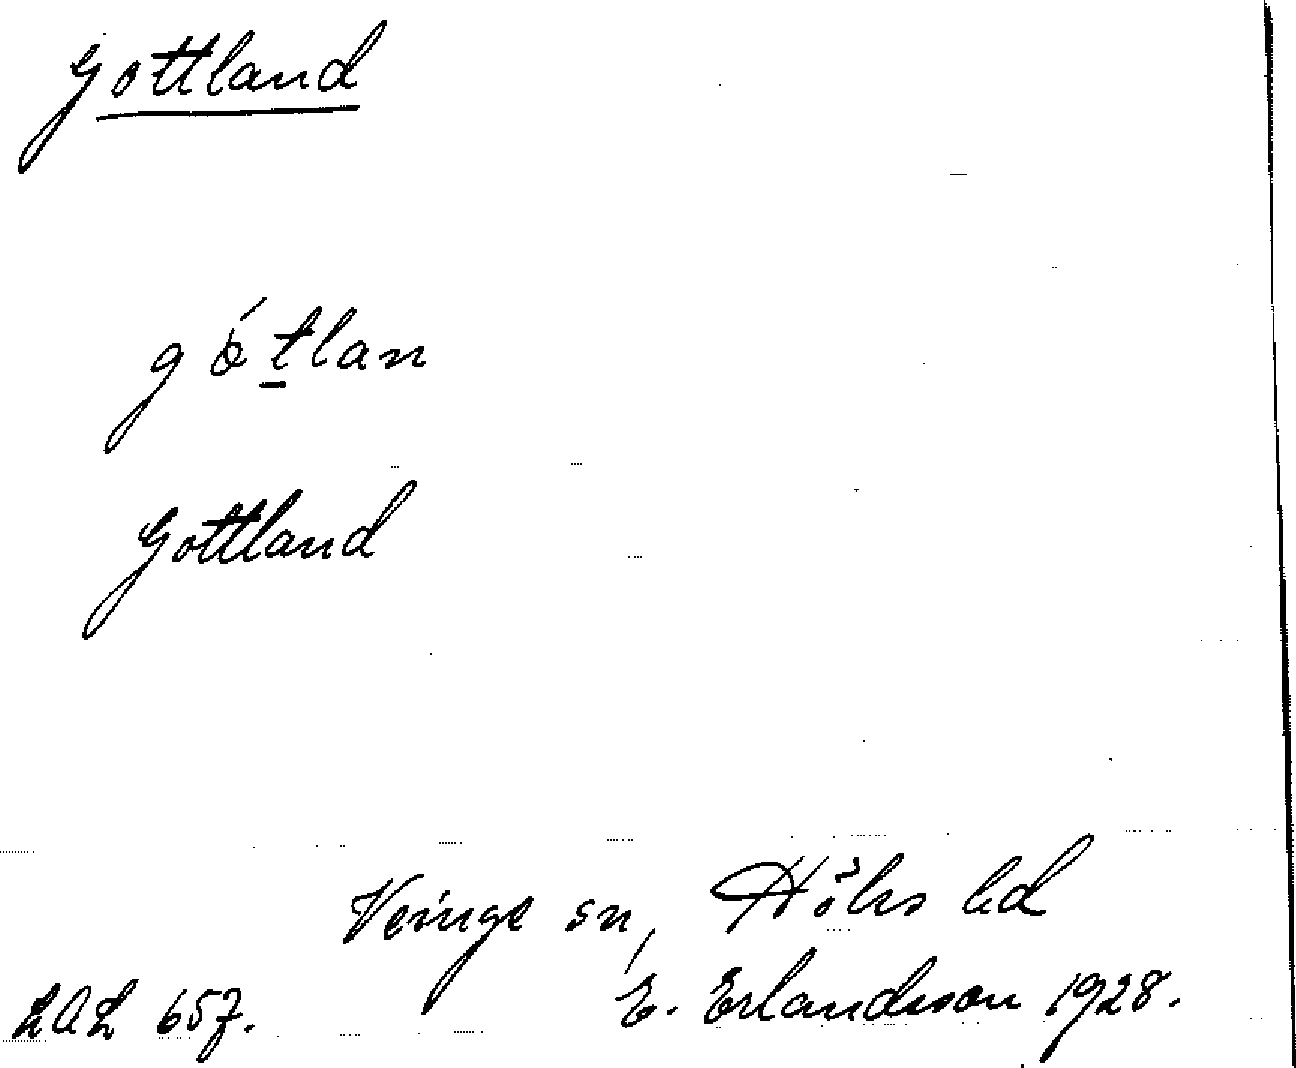 Gottland
gótlan
Gottland
Veinge sn, Höks hd
LAL 657. E. Erlandsson 1928.